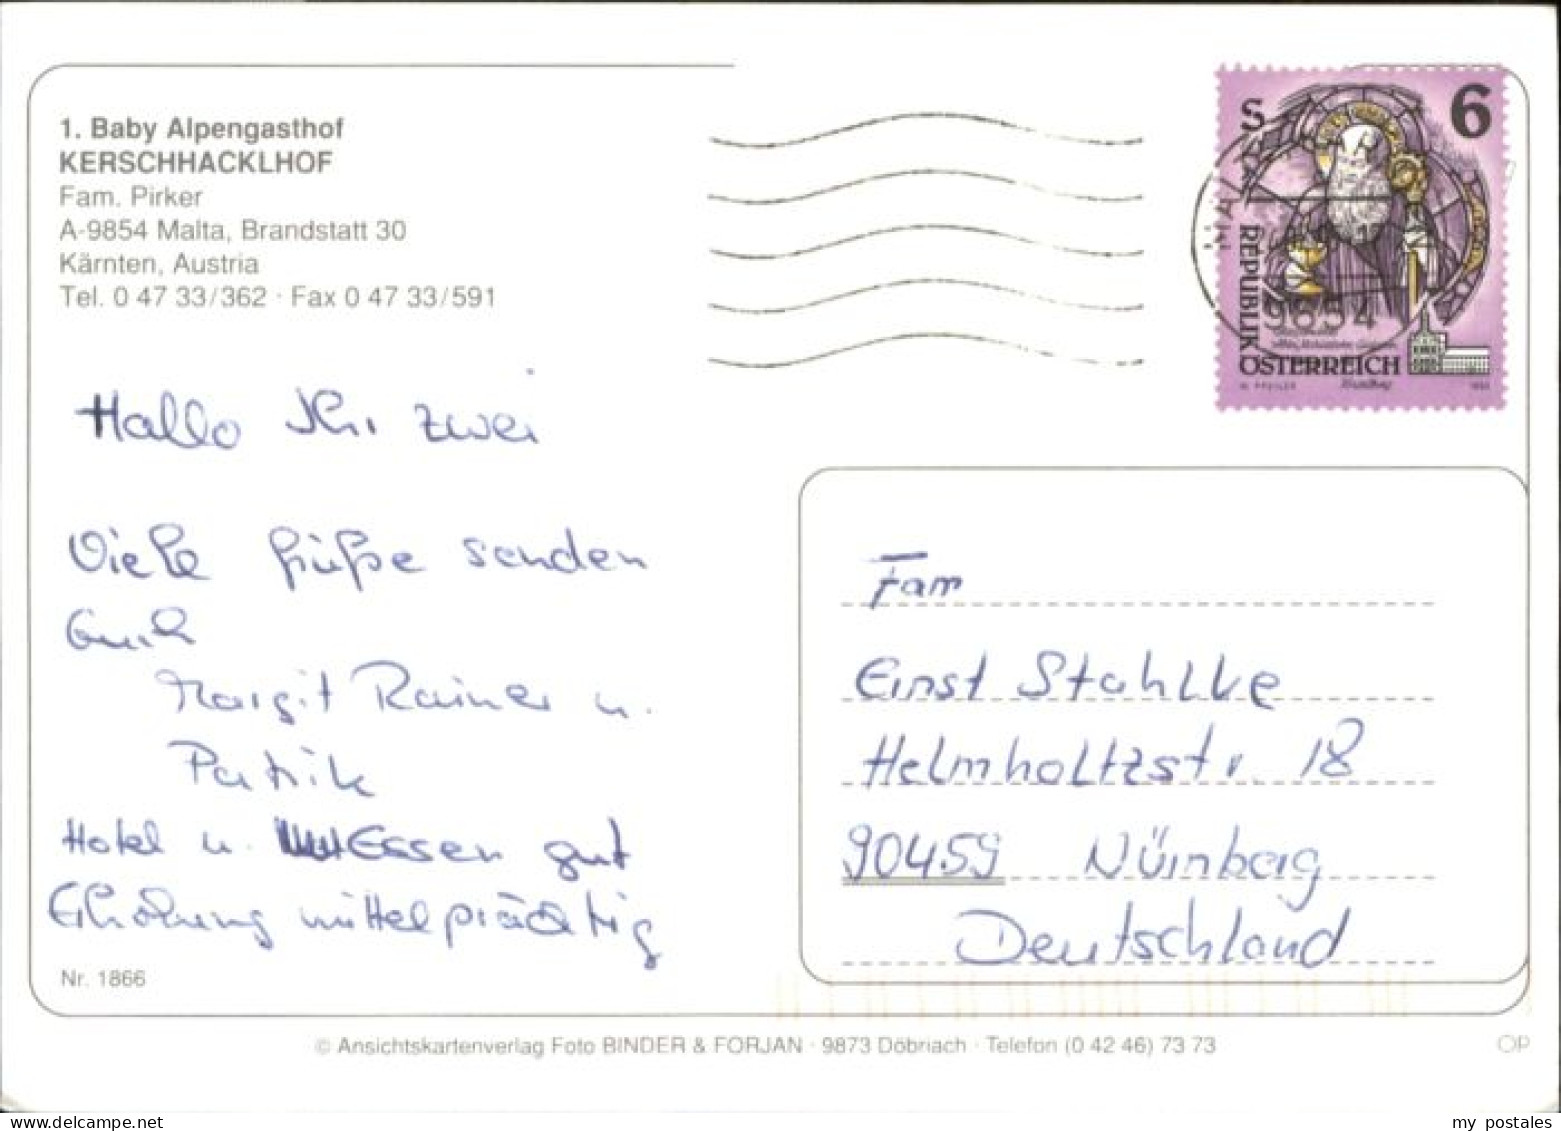 1. Baby Alpengasthof
KERSCHHACKLHOF
Fam. Pirker
A-9854 Malta, Brandstatt 30
Kärnten, Austria
Tel. 0 47 33/362 · Fax 0 47 33/591
S 6
REPUBLIK
ÖSTERREICH
9854
Hallo Ihr zwei
Viele Grüße senden
Euch
Margit Rainer u.
Patrik
Hotel u. Essen gut
Erholung mittelprächtig
Nr. 1866
Fam
Ernst Stahlke
Helmholtzstr. 18
90459 Nürnberg
Deutschland
© Ansichtskartenverlag Foto BINDER & FORJAN · 9873 Döbriach · Telefon (0 42 46) 73 73
OP
my postales